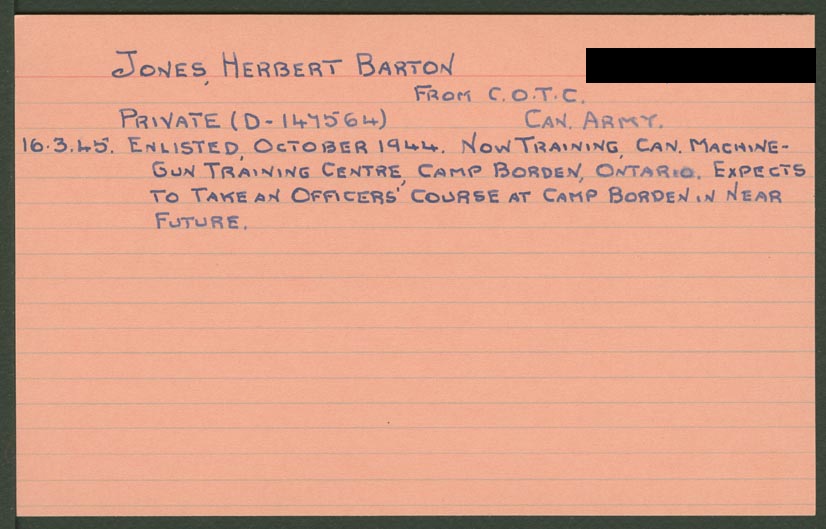 JONES, HERBERT BARTON
FROM C.O.T.C.
PRIVATE (D-147564) CAN. ARMY.
16.3.45. ENLISTED, OCTOBER 1944. NOW TRAINING, CAN. MACHINE-
GUN TRAINING CENTRE, CAMP BORDEN, ONTARIO. EXPECTS
TO TAKE AN OFFICERS' COURSE AT CAMP BORDEN IN NEAR
FUTURE.